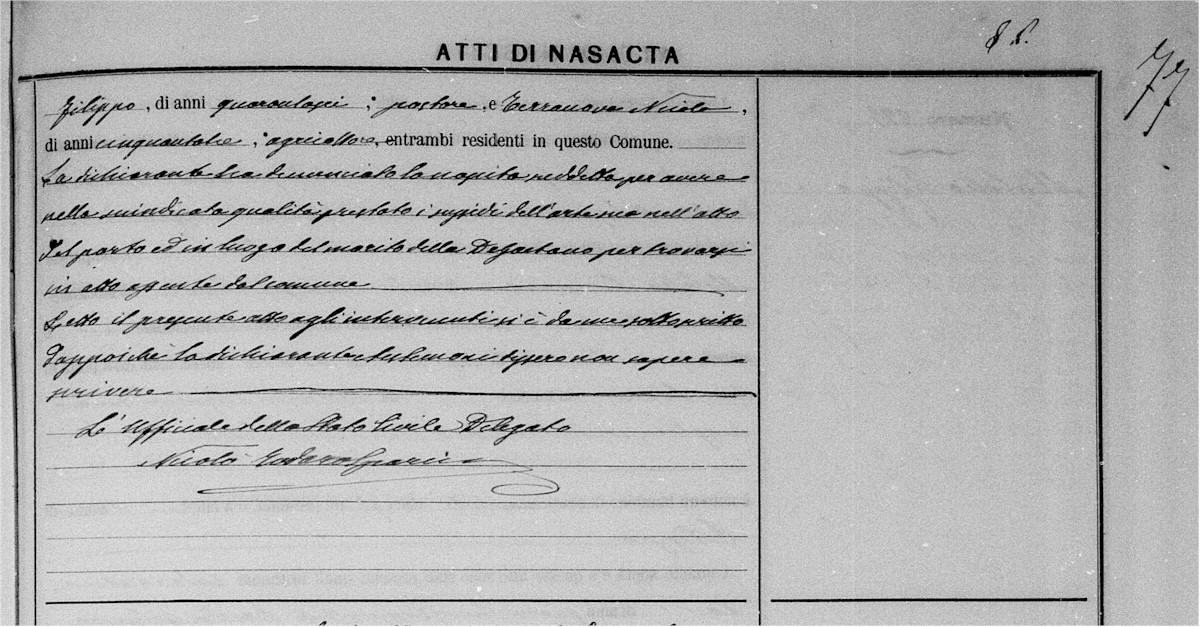 ATTI DI NASACTA
77
Filippo, di anni quarantasei; pastore, e Terranova Nicolò,
di anni cinquantatre; agricoltore, entrambi residenti in questo Comune.
La dichiarante ha denunciato la nascita suddetta per avere
nella suindicata qualità prestato i sussidi dell'arte sua nell'atto
del parto ed in luogo del marito della Degaetano per trovarsi
in atto assente dal comune
Letto il presente atto agli intervenuti si è da me sottoscritto
dappoichè la dichiarante testimoni dissero non sapere
scrivere
L'Ufficiale dello Stato Civile Delegato
Nicolò